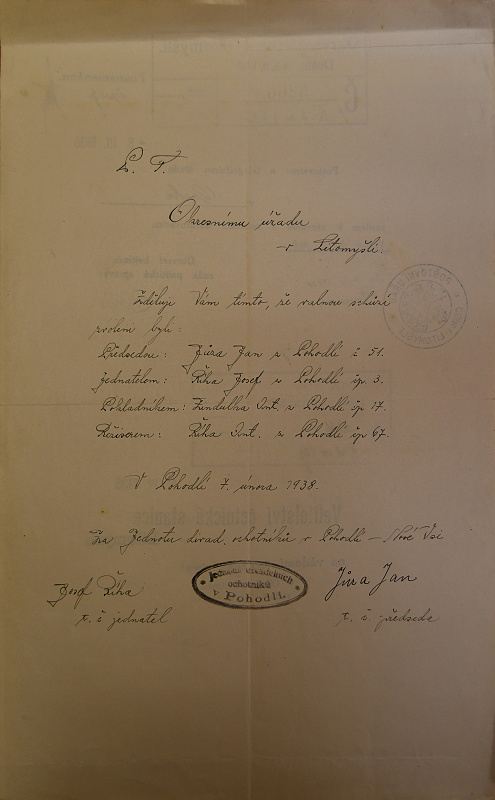 L. T.
Okresnímu úřadu
v Litomyšli.
Sděluji Vám tímto, že valnou schůzí
zvoleni byli:
Předsedou: Jůza Jan z Pohodlí č 51.
jednatelem: Říha Josef z Pohodlí čp. 3.
Pokladníkem: Zindulka Ant. z Pohodlí čp 17.
Režiserem: Říha Ant. z Pohodlí čp 67.
V Pohodlí 7. února 1938.
Za Jednotu divad. ochotníků v Pohodlí – Nové Vsi
Jednota divadelních
ochotníků
v Pohodlí.
Josef Říha
t. č jednatel
Jůza Jan
t. č. předseda